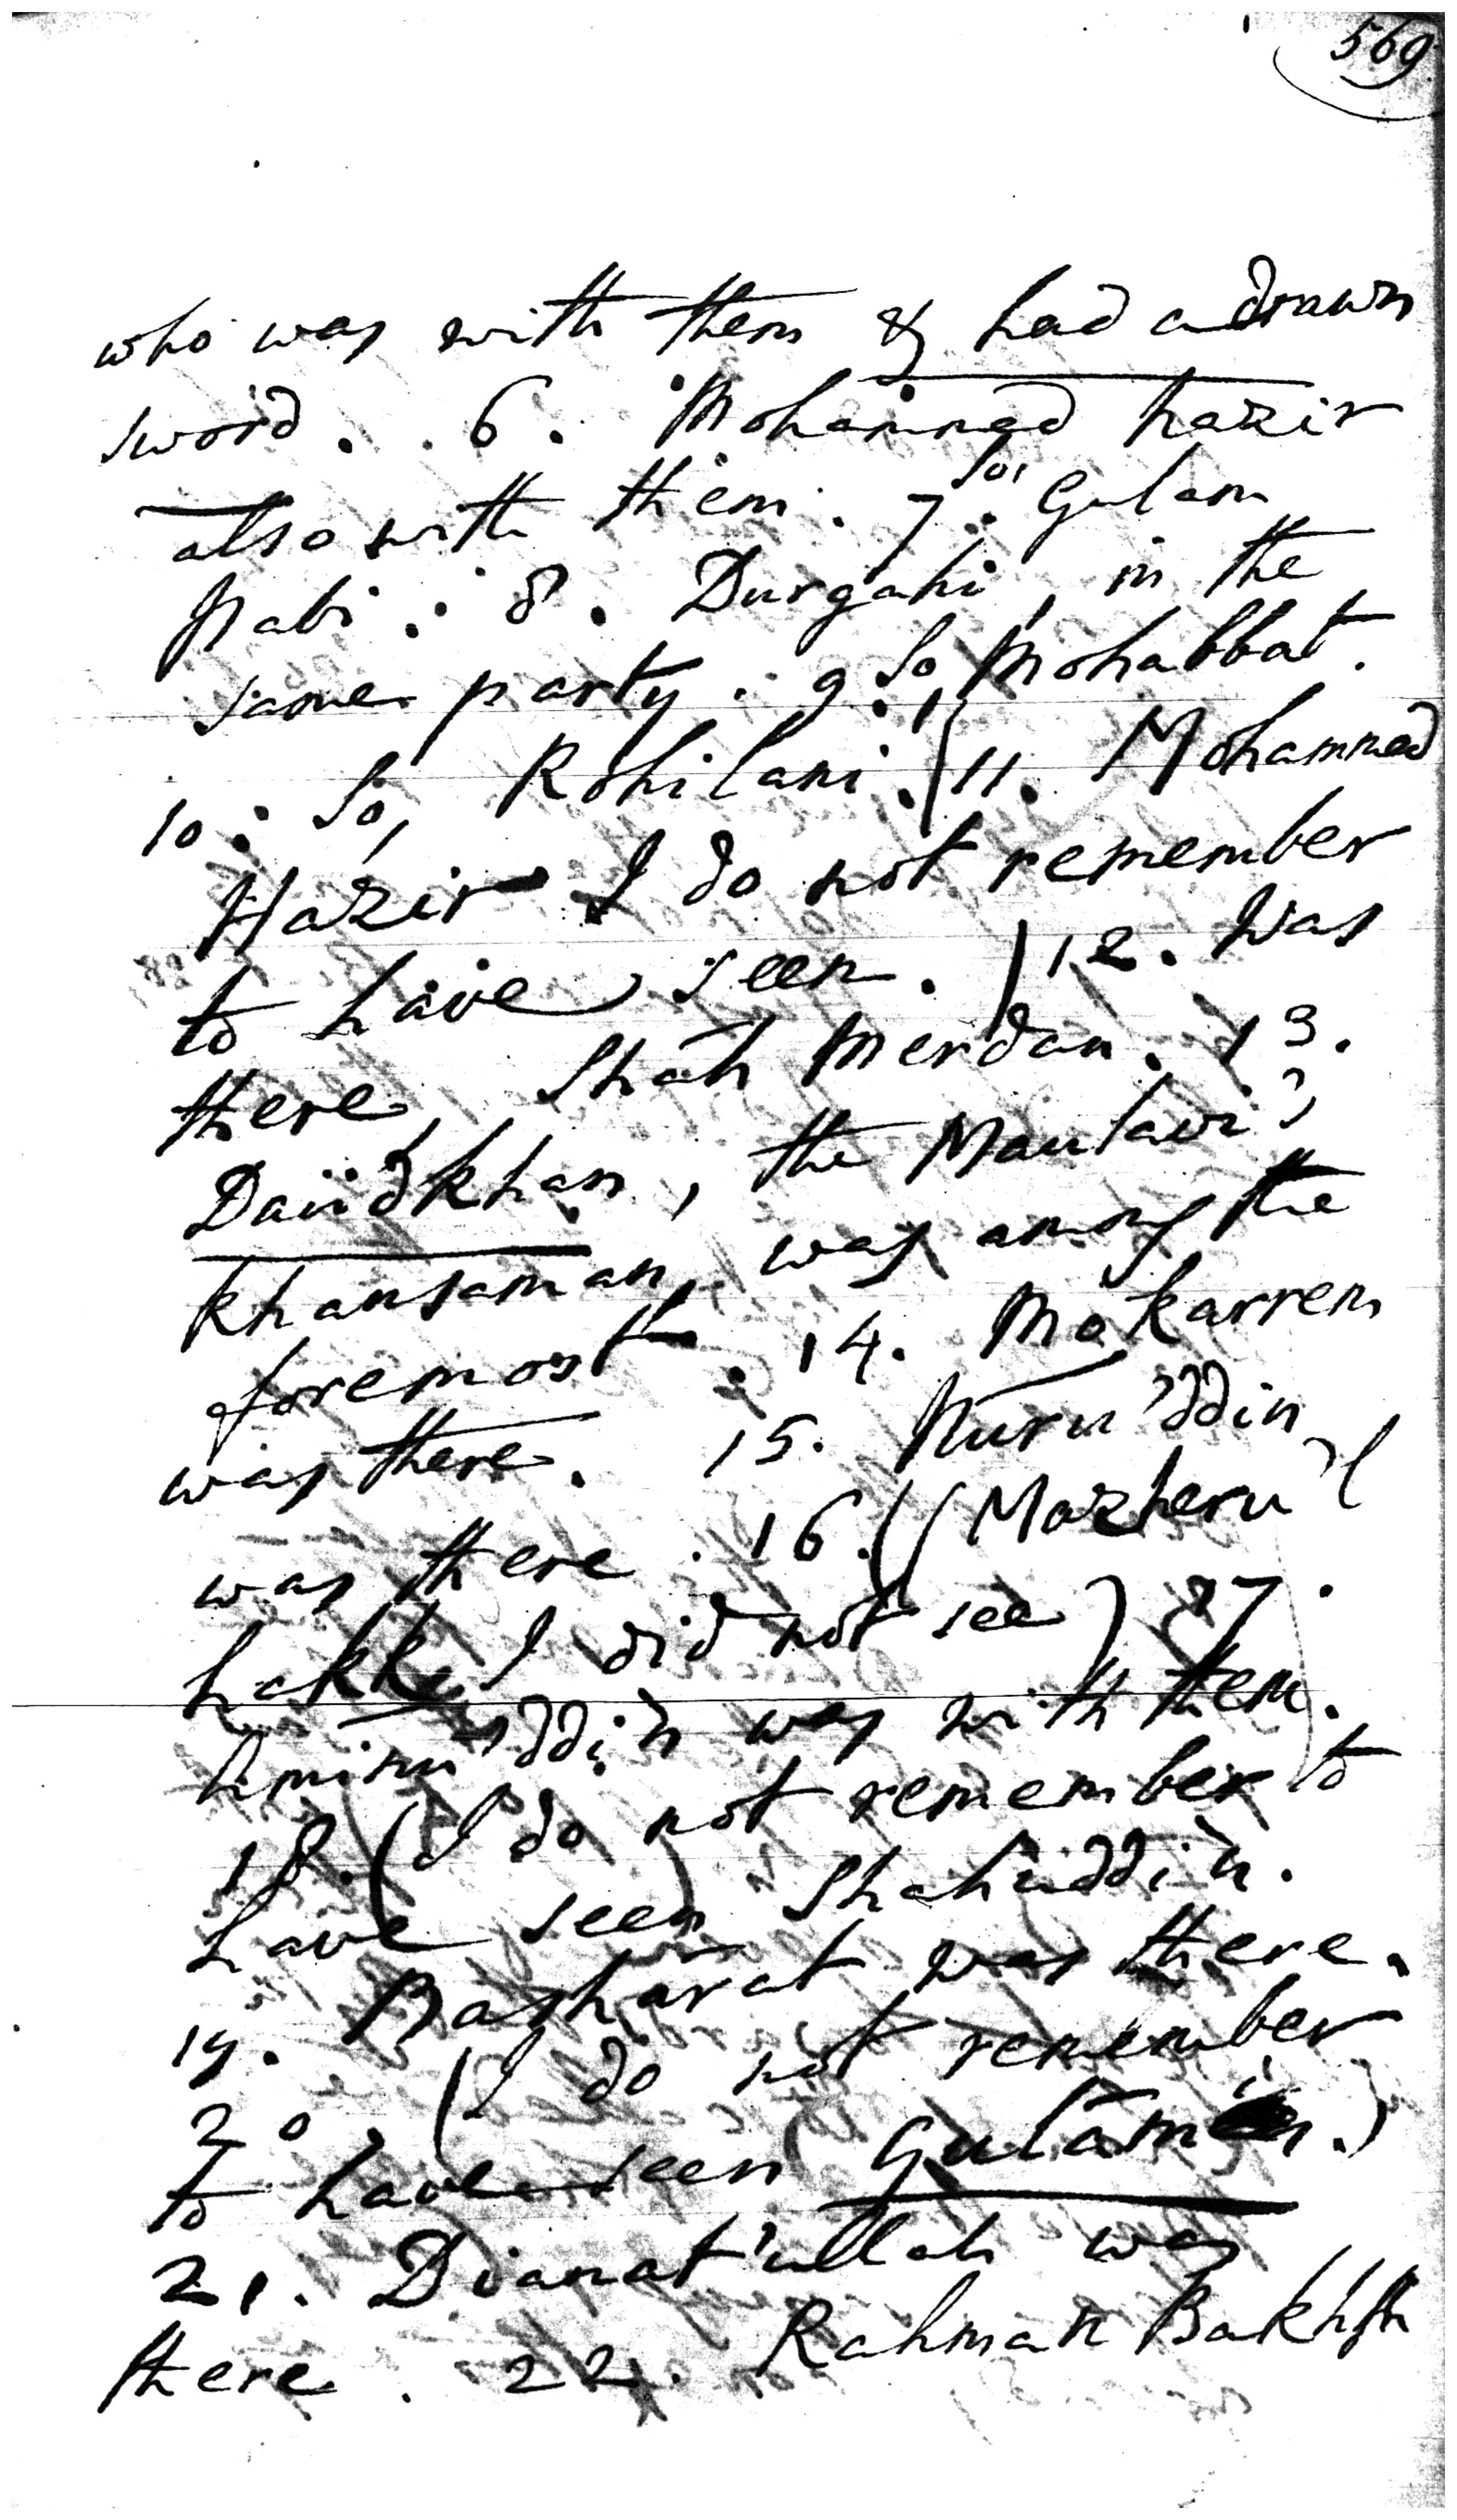 569.
who was with them & had a drawn
sword. 6. Mohammed hazir
also with them. 7. So, Gulam
Nabi. 8. Durgahi, in the
same party. 9. So, Mohabbat.
10. So, Rohilani. 11. Mohammed
Hazir I do not remember
to have seen.) 12. Was
there, Shah Merdan. 13.
Daüdkhan, the Maulavi's
khansaman, was among the
foremost. 14. Mokarrem
was there. 15. Nuru'ddin
was there. 16. (Mazheru'l
hakk I did not see) 17.
Aminu'ddin was with them.
18. (I do not remember to
have seen) Shahuddin.
19. Basharat was there.
20. (I do not remember
to have seen Gulam.)
21. Dianat'ullah was
there. 22. Rahman Bakhsh